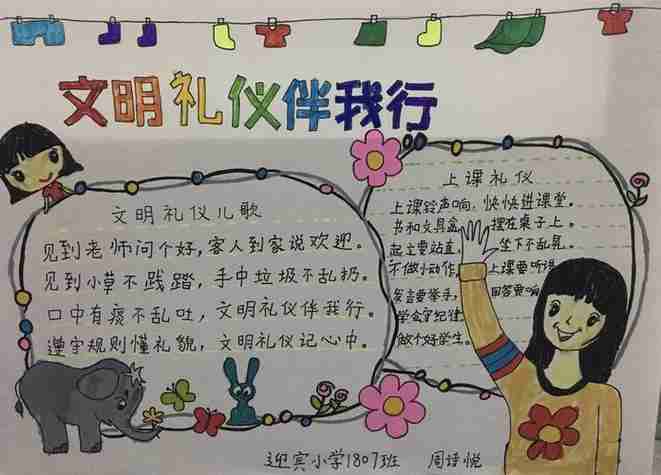 文明礼仪伴我行
文明礼仪儿歌
见到老师问个好，客人到家说欢迎。
见到小草不践踏，手中垃圾不乱扔。
口中有痰不乱吐，文明礼仪伴我行。
遵守规则懂礼貌，文明礼仪记心中。
上课礼仪
上课铃声响，快快进课堂。
书和文具盒 摆在桌子上。
起立要站直 坐下不乱晃。
不做小动作 上课要听讲
发言要举手， 回答要响
学会守纪律
做个好学生。
迎宾小学1807班 周诗悦